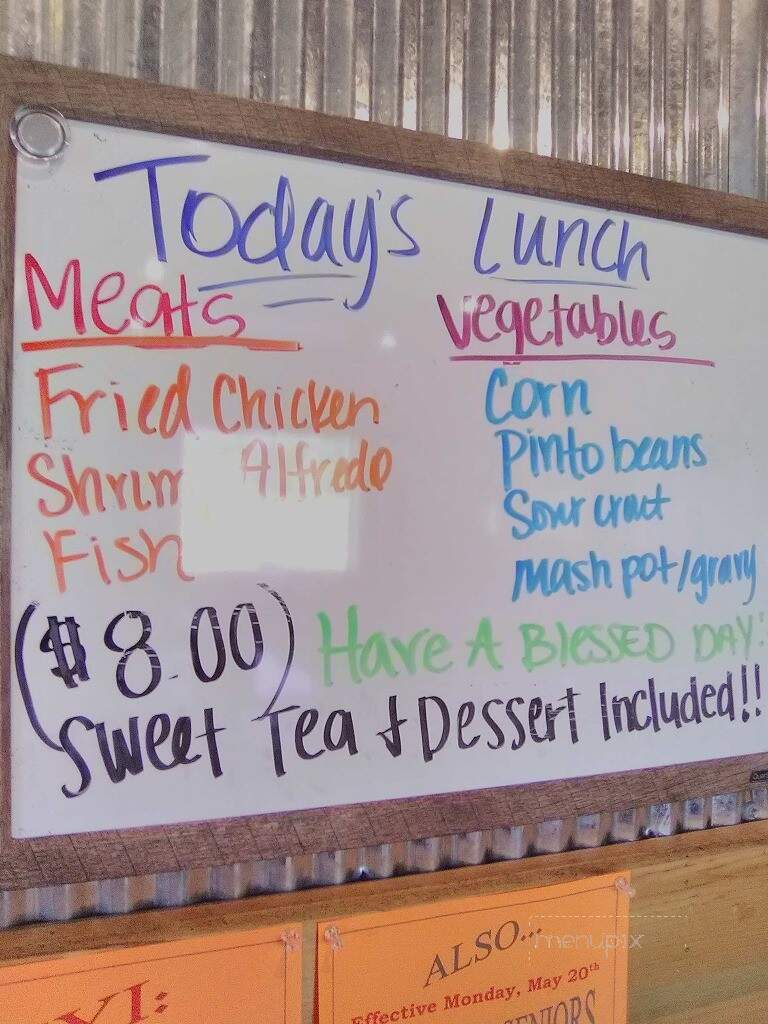 Today's Lunch
Meats
Vegetables
Fried Chicken
Shrim Alfredo
Fish
Corn
Pinto beans
Sour craut
mash pot/gravy
($8.00)
Have A Blessed Day:
Sweet Tea & Dessert Included!!
YI:
ALSO...
Effective Monday, May 20th
SENIORS
menupix